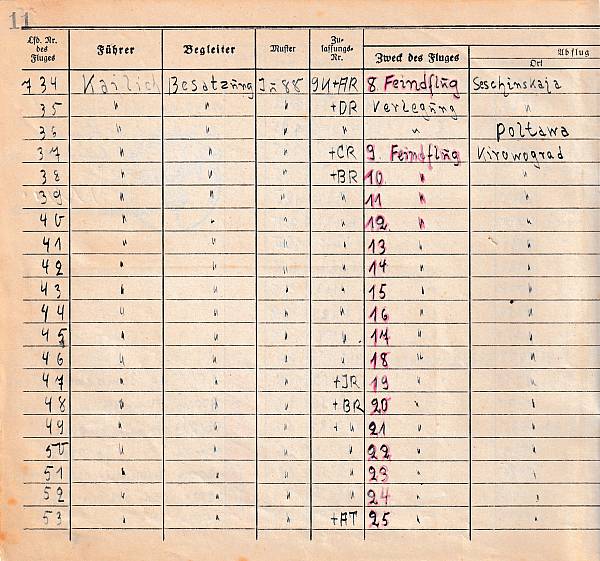 11
Lfd. Nr. des Fluges Führer Begleiter Muster Zu- lassungs- Nr. Zweck des Fluges Abflug Ort
734 Karlich Besatzung Ju 88 9K+AR 8. Feindflug Seschinskaja
35 " " " +DR Verlegung "
36 " " " " " Poltawa
37 " " " +CR 9. Feindflug Kirowograd
38 " " " +BR 10 " "
39 " " " " 11 " "
40 " " " " 12 " "
41 " " " " 13 " "
42 " " " " 14 " "
43 " " " " 15 " "
44 " " " " 16 " "
45 " " " " 17 " "
46 " " " " 18 " "
47 " " " +JR 19 " "
48 " " " +BR 20 " "
49 " " " + " 21 " "
50 " " " " 22 " "
51 " " " " 23 " "
52 " " " " 24 " "
53 " " " +AT 25 " "